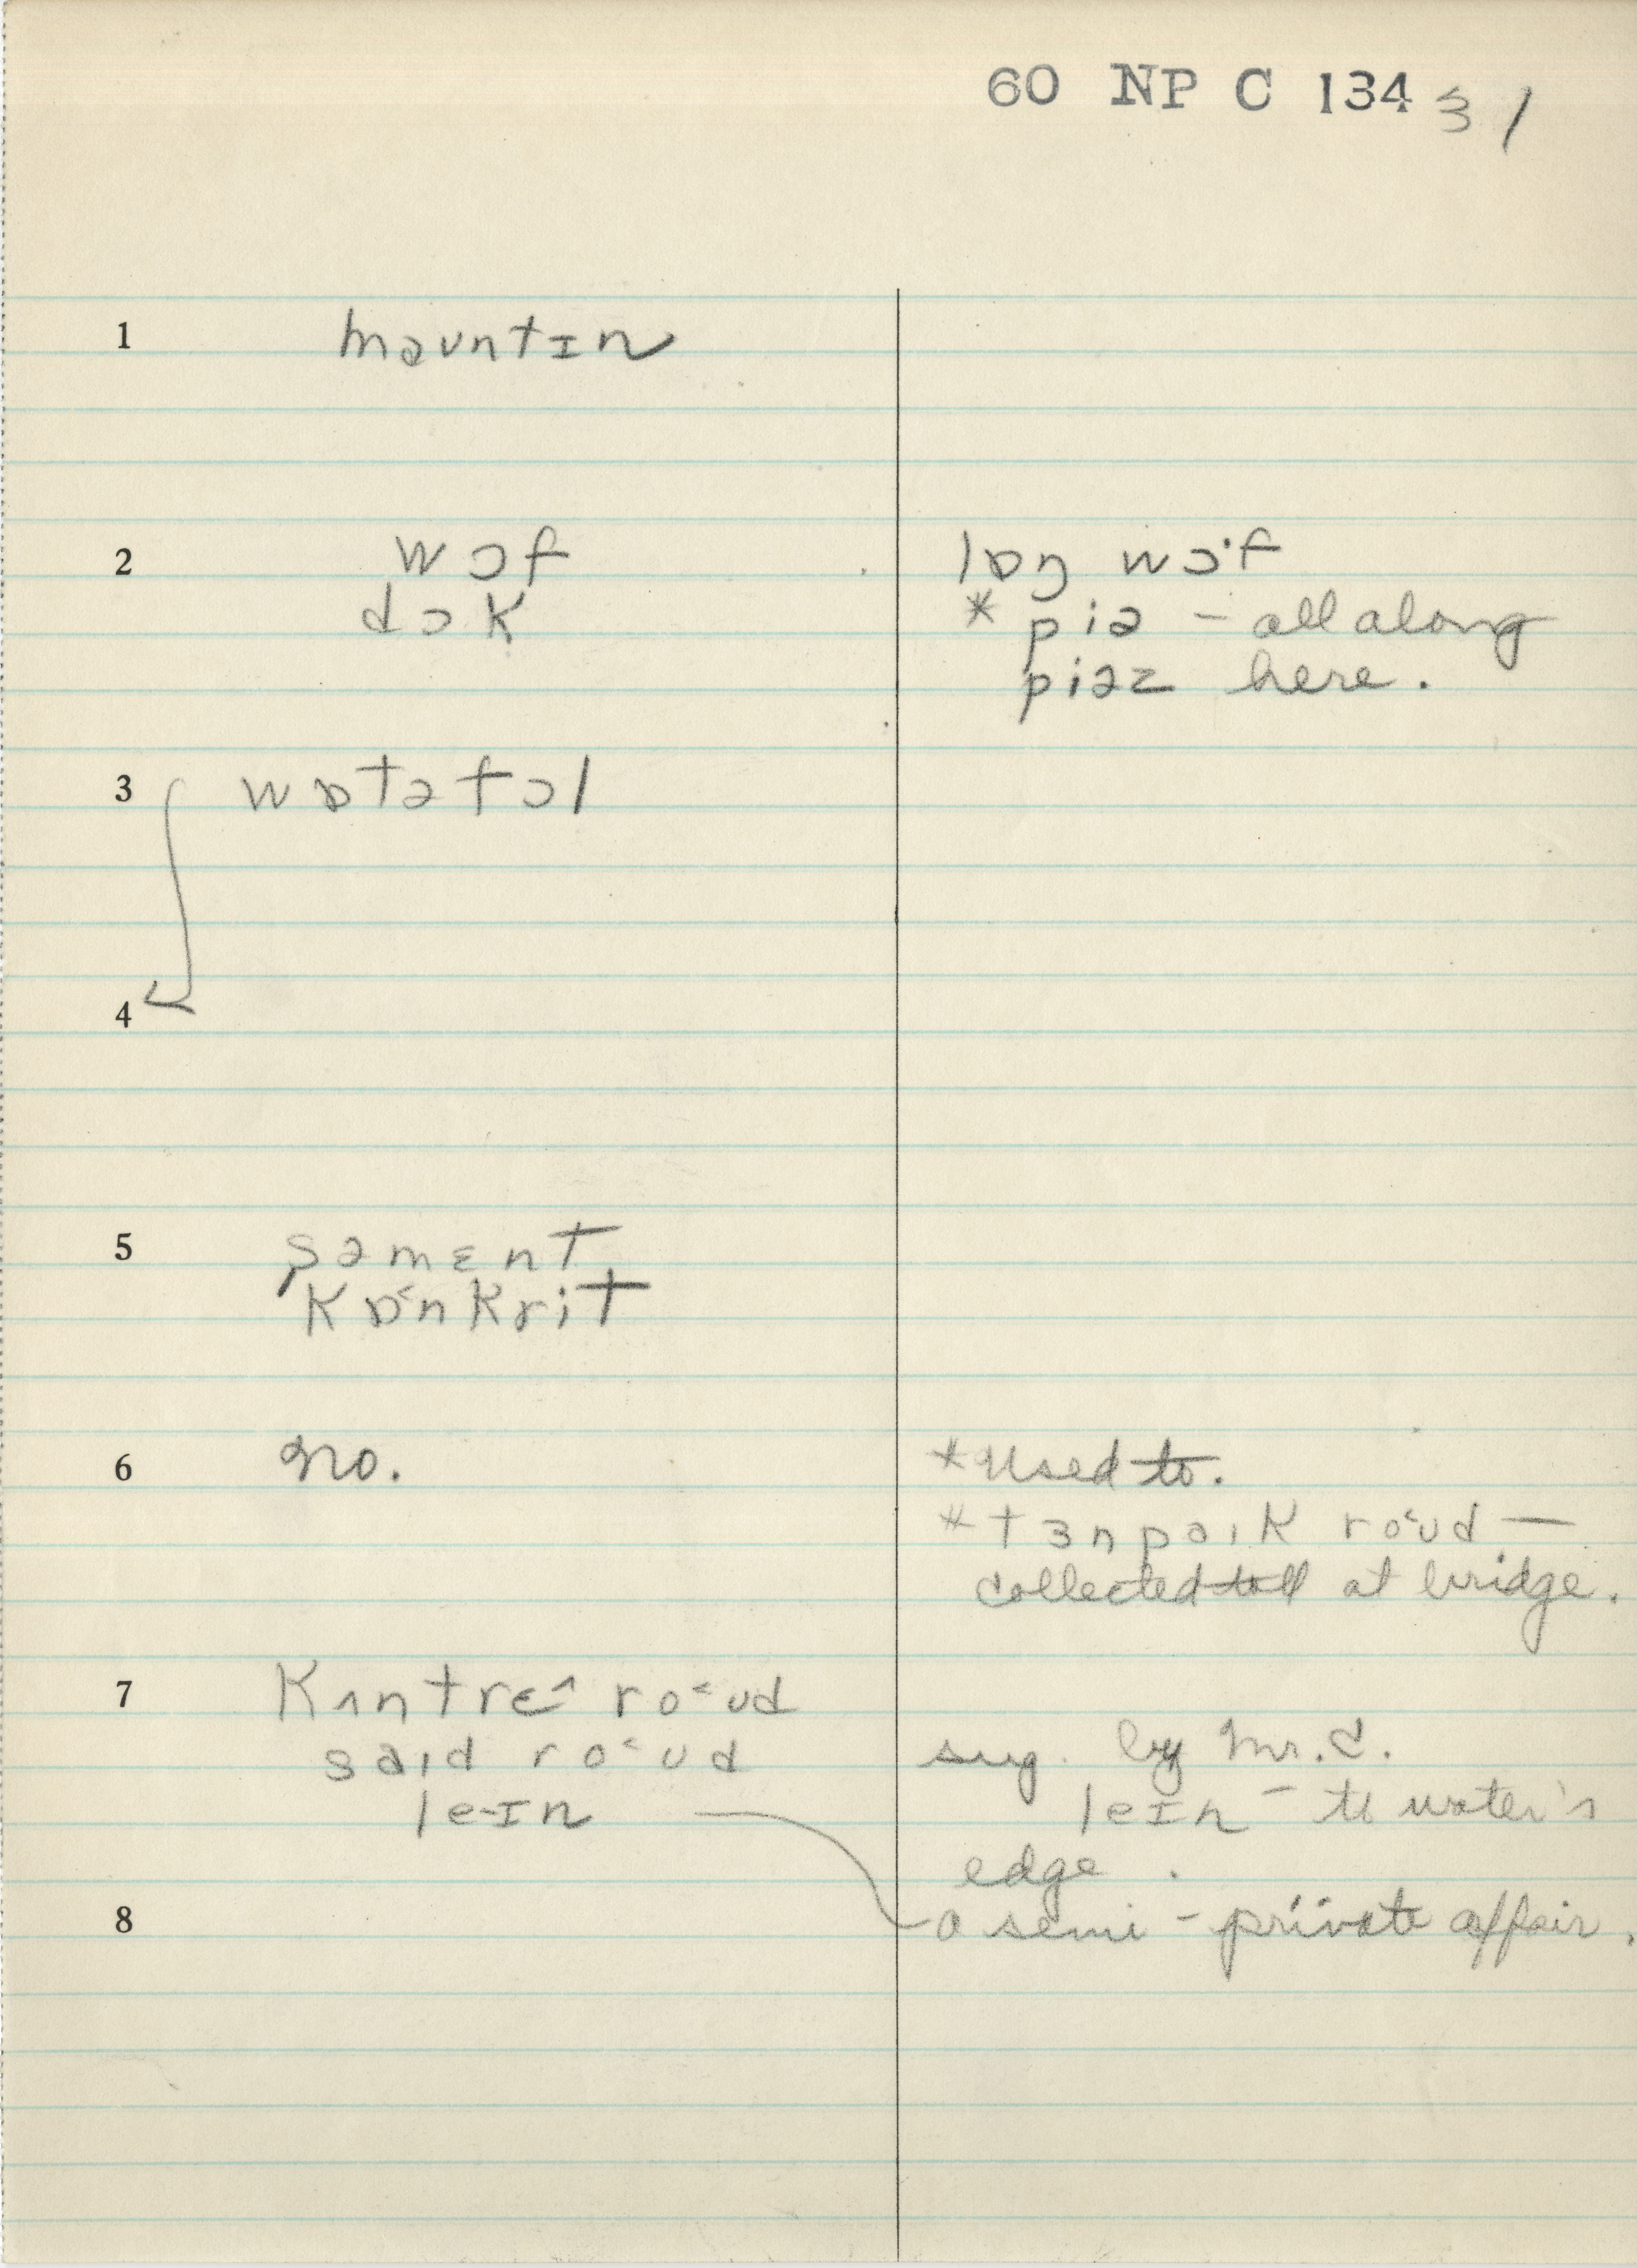 60 NP C 134 31
1 məuntɪn
2 wɔf lɒŋ wɔ˙f
dɔk * piə – all along
piəz here.
3 wɒtəfɔl
4
5 səmɛnt
kɒ˂nkrit
6 no. * used to.
* tɜnpaɪk ro˂ʊd —
collected toll at bridge.
7 kʌntrɛ^ ro˂ʊd
saɪd ro˂ʊd sug. by Mr. C.
leɪn leɪn – to water's
edge.
8 a semi-private affair.